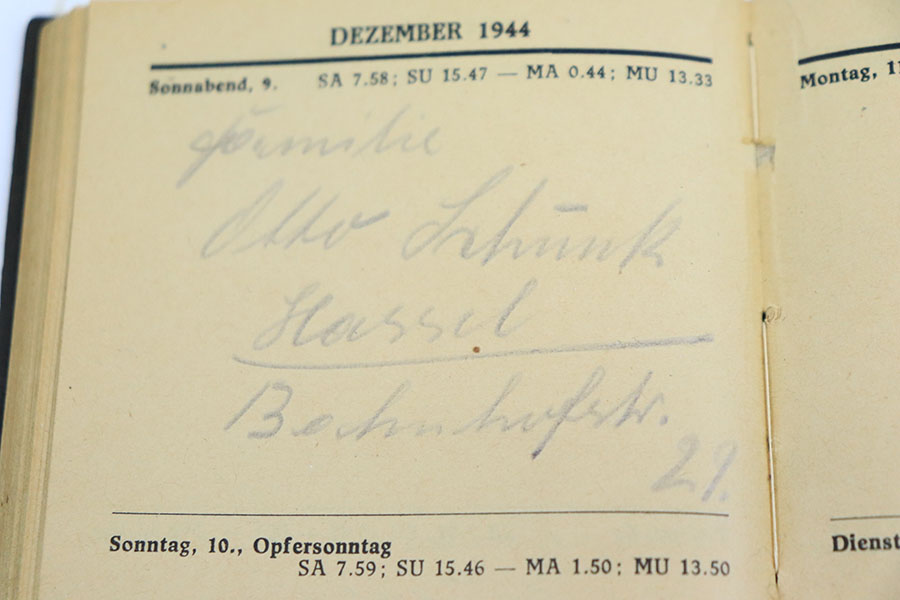 DEZEMBER 1944
Sonnabend, 9. SA 7.58; SU 15.47 — MA 0.44; MU 13.33
Familie
Otto Schunk
Hassel
Bahnhofstr.
29.
Sonntag, 10., Opfersonntag
SA 7.59; SU 15.46 — MA 1.50; MU 13.50
Montag, 11
Dienst